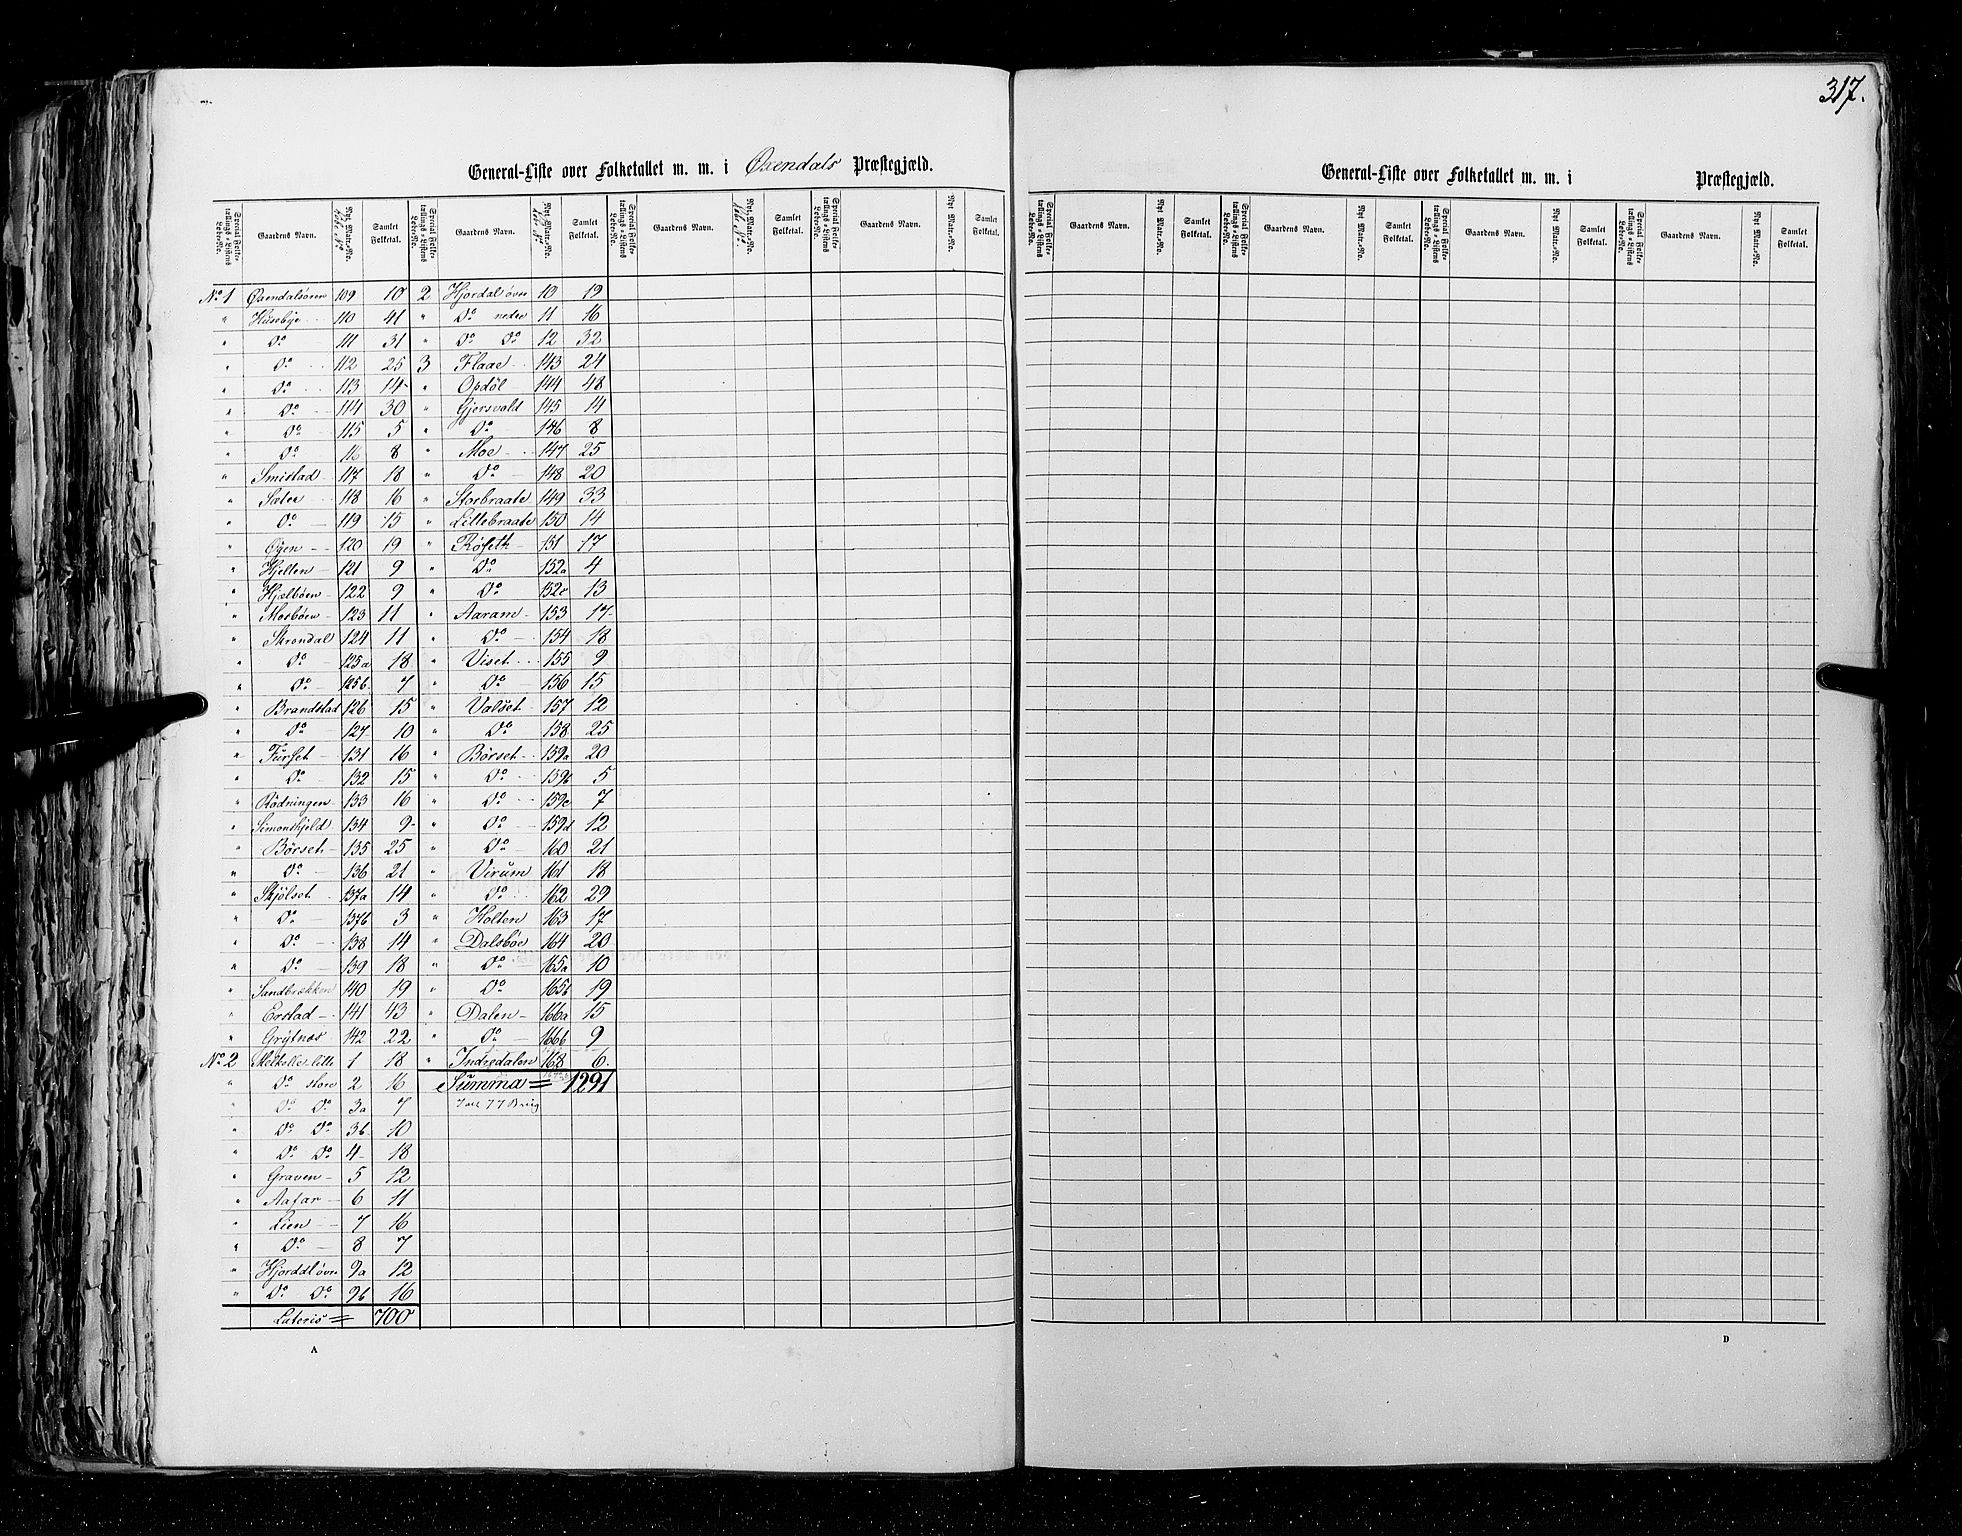 317.
General-Liste over Folketallet m. m. i Øxendals Præstegjæld.
General-Liste over Folketallet m. m. i Præstegjæld.
Special Folketællings-Listens Løbe-No. Gaardens Navn. Nyt Matr.-No. Samlet Folketal. Special Folketællings-Listens Løbe-No. Gaardens Navn. Nyt Matr.-No. Samlet Folketal. Special Folketællings-Listens Løbe-No. Gaardens Navn. Nyt Matr.-No. Samlet Folketal. Special Folketællings-Listens Løbe-No. Gaardens Navn. Nyt Matr.-No. Samlet Folketal.
Special Folketællings-Listens Løbe-No. Gaardens Navn. Nyt Matr.-No. Samlet Folketal. Special Folketællings-Listens Løbe-No. Gaardens Navn. Nyt Matr.-No. Samlet Folketal. Special Folketællings-Listens Løbe-No. Gaardens Navn. Nyt Matr.-No. Samlet Folketal. Special Folketællings-Listens Løbe-No. Gaardens Navn. Nyt Matr.-No. Samlet Folketal.
No. 1 Øxendalsøren 109 10 2 Hjordal øvre 10 19
" Husebye 110 41 " Do nedre 11 16
" Do 111 31 " Do Do 12 32
" Do 112 25 3 Flaae 143 24
" Do 113 14 " Opdøl 144 48
" Do 114 30 " Gjersvold 145 14
" Do 115 5 " Do 146 8
" Do 116 8 " Moe 147 25
" Smistad 117 18 " Do 148 20
" Sæter 118 16 " Storbraate 149 33
" Do 119 15 " Lillebraate 150 14
" Øyen 120 19 " Røseth 151 17
" Hjellen 121 9 " Do 152a 4
" Hjelbøen 122 9 " Do 152c 13
" Mosbøen 123 11 " Aaram 153 17
" Skrondal 124 11 " Do 154 18
" Do 125a 18 " Viset 155 9
" Do 125b. 7 " Do 156 15
" Brandstad 126 15 " Valset 157 12
" Do 127 10 " Do 158 25
" Furset 131 16 " Børset 159a 20
" Do 132 15 " Do 159b 5
" Rødningen 133 16 " Do 159c 7
" Simonskjeld 134 9 " Do 159d 12
" Børset 135 25 " Do 160 21
" Do 136 21 " Virum 161 18
" Skjølset 137a 14 " Do 162 29
" Do 137b 3 " Holten 163 17
" Do 138 14 " Dalsbøe 164 20
" Do 139 18 " Do 165a 10
" Sandbrækken 140 19 " Do 165b 19
" Erstad 141 43 " Dalen 166a 15
" Grytnæs 142 22 " Do 166b 9
No. 2 Melkelle lille 1 18 " Indredalen 168 6
" Do store 2 16 Summa = 1291
" Do Do 3a 7 77 Brug
" Do Do 3b. 10
" Do Do 4 18
" Graven 5 12
" Aafar 6 11
" Lien 7 16
" Do 8 7
" Hjorddl øvre 9a 12
" Do Do 9b 16
Lateris = 700
A
D